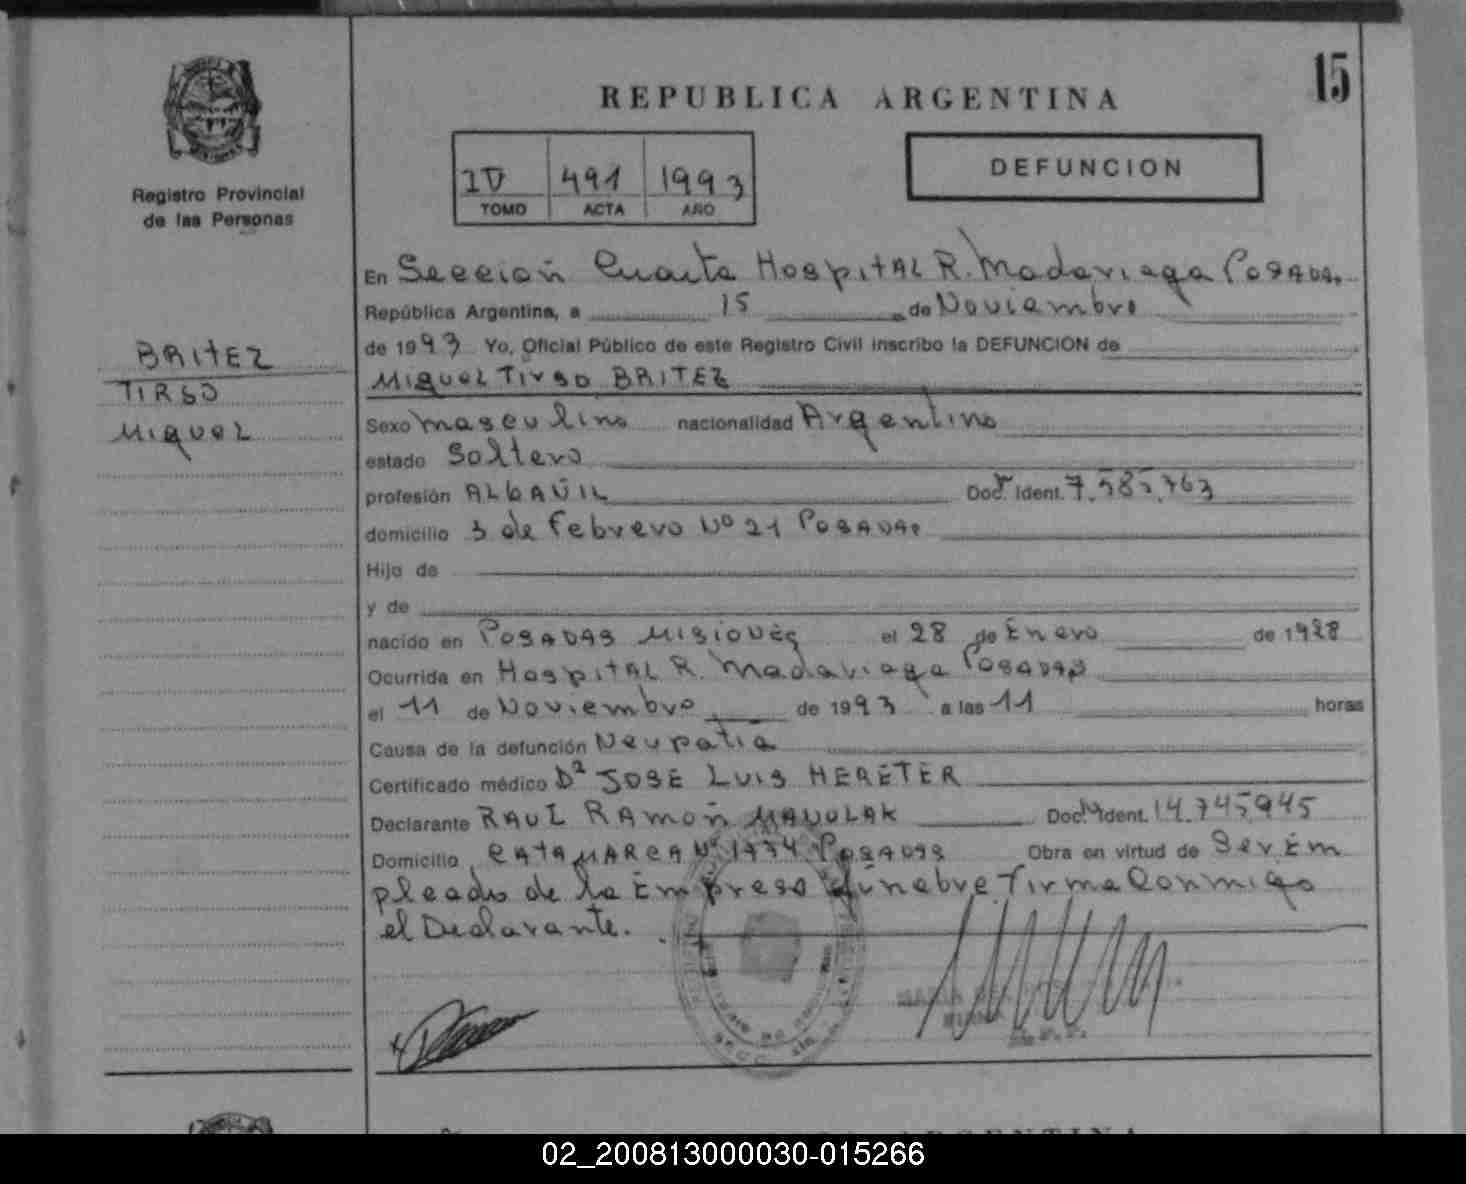 15
REPUBLICA ARGENTINA
DEFUNCION
491 1993
TOMO ACTA AÑO
Registro Provincial
de las Personas
BRITEZ
TIRSO
MIGUEL
En Sección Cuarta HospitAL R. Madariaga POSADAS
República Argentina, a 15 de Noviembre
de 1993 Yo, Oficial Público de este Registro Civil inscribo la DEFUNCION de
MIGUEL TIRSO BRITEZ
Sexo masculino nacionalidad Argentino
estado Soltero
profesión ALBAÑIL Doc. Ident. 7.585.763
domicilio 3 de Febrero Nº 21 POSADAS
Hijo de
y de
nacido en POSADAS MISIONES el 28 de Enero de 1928
Ocurrida en HospitAL R. Madariaga POSADAS
el 11 de Noviembre de 1993 a las 11 horas
Causa de la defunción
Certificado médico JOSE LUIS HERETER
Declarante RAUL RAMON MANULAK Doc. Ident. 14.745.945
Domicilio CATAMARCA Nº 1774 POSADAS Obra en virtud de Ser Em
pleado de la Empresa fúnebre Firma Conmigo
el Declarante.
MARIA
ARGENTINA
02_200813000030-015266